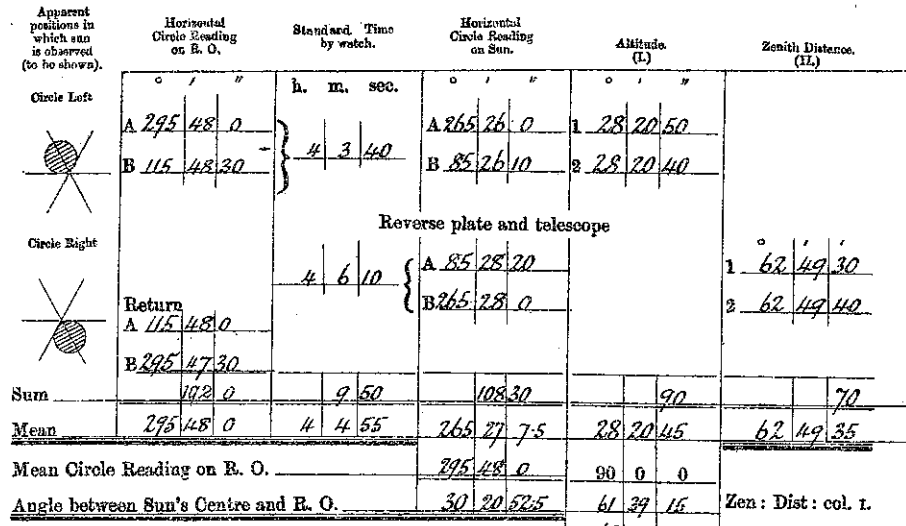 Apparent positions in which sun is observed (to be shown).
Horizontal Circle Reading on R. O.
Standard Time by watch.
Horizontal Circle Reading on Sun.
Altitude. (I.)
Zenith Distance. (II.)
° ′ ″ h. m. sec. ° ′ ″ ° ′ ″
Circle Left
A 295 48 0 A 265 26 0 1 28 20 50
4 3 40
B 115 48 30 B 85 26 10 2 28 20 40
Reverse plate and telescope
Circle Right
° ′ ′
A 85 28 20 1 62 49 30
4 6 10
B 265 28 0 2 62 49 40
Return
A 115 48 0
B 295 47 30
Sum 192 0 9 50 108 30 90 70
Mean 295 48 0 4 4 55 265 27 7·5 28 20 45 62 49 35
Mean Circle Reading on R. O. 295 48 0 90 0 0
Angle between Sun's Centre and R. O. 30 20 52·5 61 39 15 Zen : Dist : col. I.